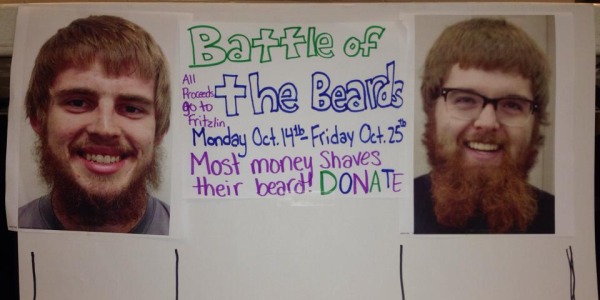 Battle of
the Beards
All
Proceeds
go to
Fritzlin
Monday Oct. 14th - Friday Oct. 25th
Most money shaves
their beard! DONATE